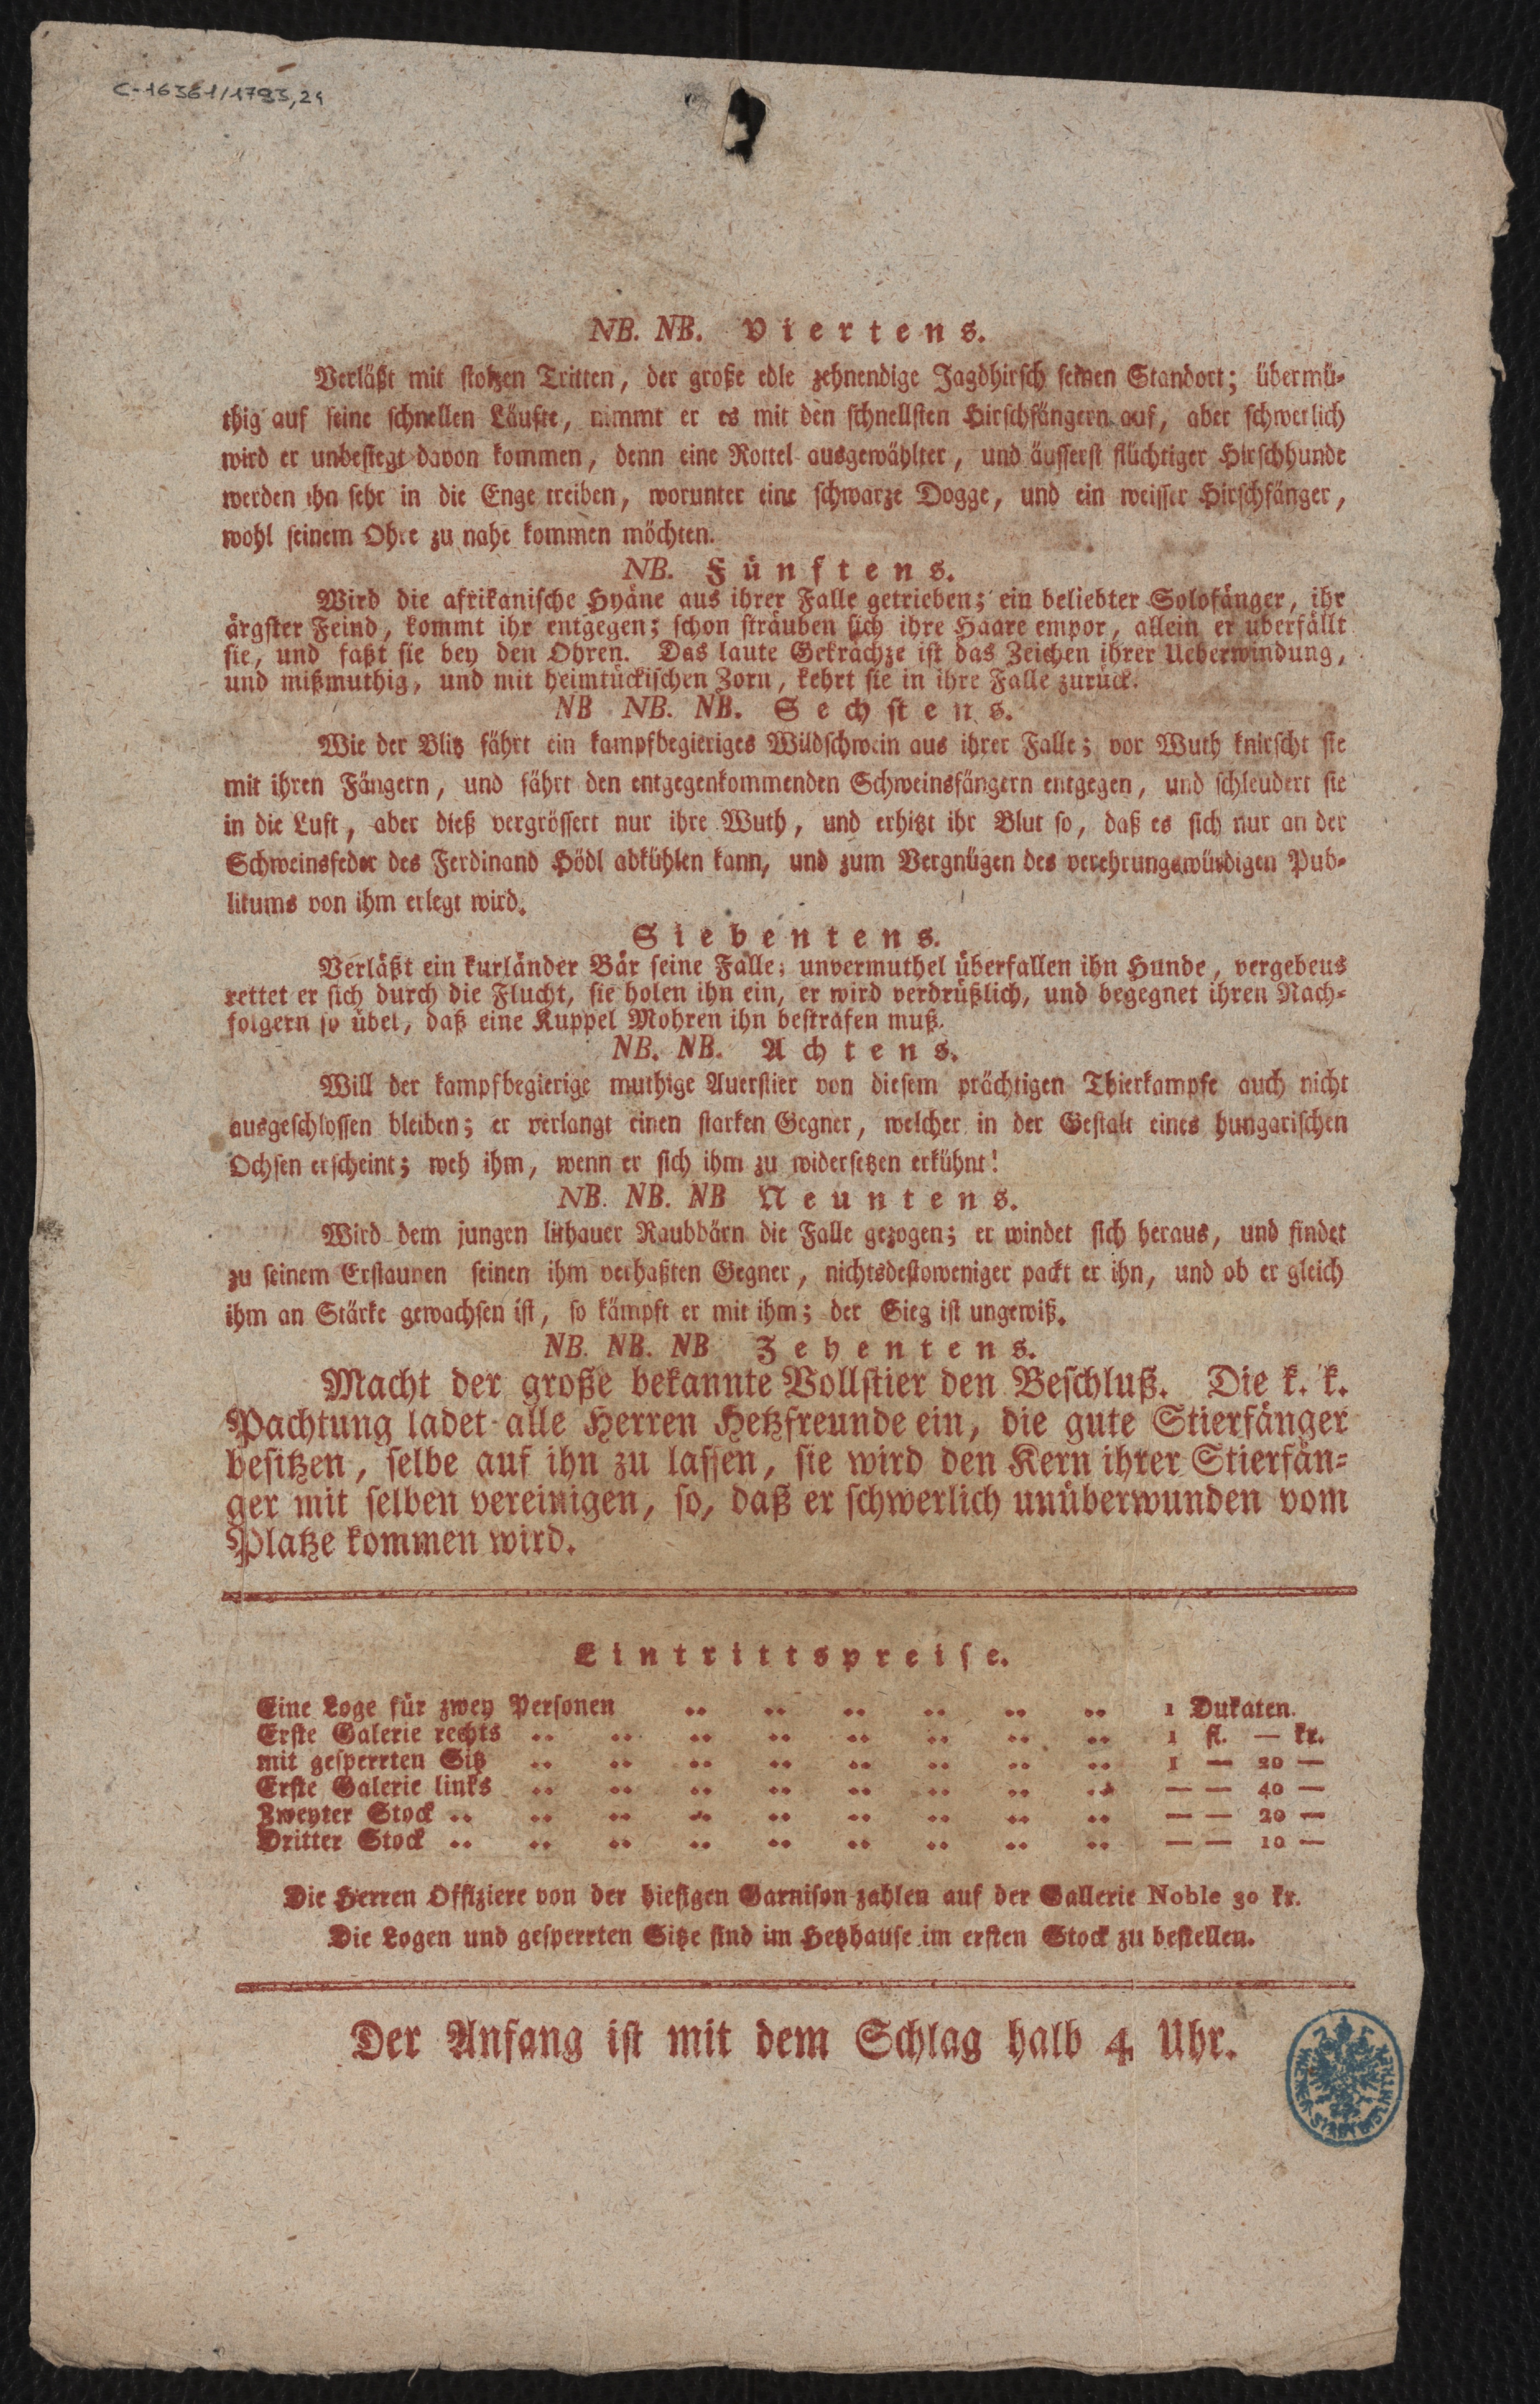 C-16361/1793,24
NB. NB. Viertens.
Verläßt mit stolzen Tritten, der große edle zehnendige Jagdhirsch seinen Standort; übermü-
thig auf seine schnellen Läufte, nimmt er es mit den schnellsten Hirschfängern auf, aber schwerlich
wird er unbesiegt davon kommen, denn eine Rottel ausgewählter, und äusserst flüchtiger Hirschhunde
werden ihn sehr in die Enge treiben, worunter eine schwarze Dogge, und ein weisser Hirschfänger,
wohl seinem Ohre zu nahe kommen möchten.
NB. Fünftens.
Wird die afrikanische Hyäne aus ihrer Falle getrieben; ein beliebter Solofänger, ihr
ärgster Feind, kommt ihr entgegen; schon sträuben sich ihre Haare empor, allein er überfällt
sie, und faßt sie bey den Ohren. Das laute Gekrächze ist das Zeichen ihrer Ueberwindung,
und mißmuthig, und mit heimtückischen Zorn, kehrt sie in ihre Falle zurück.
NB NB. NB. Sechstens.
Wie der Blitz fährt ein kampfbegieriges Wildschwein aus ihrer Falle; vor Wuth knirscht sie
mit ihren Fängern, und fährt den entgegenkommenden Schweinsfängern entgegen, und schleudert sie
in die Luft, aber dieß vergrössert nur ihre Wuth, und erhitzt ihr Blut so, daß es sich nur an der
Schweinsfeder des Ferdinand Hödl abkühlen kann, und zum Vergnügen des verehrungswürdigen Pub-
likums von ihm erlegt wird.
Siebentens.
Verläßt ein kurländer Bär seine Falle; unvermuthel überfallen ihn Hunde, vergebens
rettet er sich durch die Flucht, sie holen ihn ein, er wird verdrüßlich, und begegnet ihren Nach-
folgern so übel, daß eine Kuppel Mohren ihn bestrafen muß.
NB. NB. Achtens.
Will der kampfbegierige muthige Auerstier von diesem prächtigen Thierkampfe auch nicht
ausgeschlossen bleiben; er verlangt einen starken Gegner, welcher in der Gestalt eines hungarischen
Ochsen erscheint; weh ihm, wenn er sich ihm zu widersetzen erkühnt!
NB. NB. NB Neuntens.
Wird dem jungen lithauer Raubbärn die Falle gezogen; er windet sich heraus, und findet
zu seinem Erstaunen seinen ihm verhaßten Gegner, nichtsdestoweniger packt er ihn, und ob er gleich
ihm an Stärke gewachsen ist, so kämpft er mit ihm; der Sieg ist ungewiß.
NB. NB. NB Zehentens.
Macht der große bekannte Vollstier den Beschluß. Die k. k.
Pachtung ladet alle Herren Hetzfreunde ein, die gute Stierfänger
besitzen, selbe auf ihn zu lassen, sie wird den Kern ihrer Stierfän-
ger mit selben vereinigen, so, daß er schwerlich unüberwunden vom
Platze kommen wird.
Eintrittspreise.
Eine Loge für zwey Personen .. .. .. .. .. .. 1 Dukaten.
Erste Galerie rechts .. .. .. .. .. .. .. .. 1 fl. — kr.
mit gesperrten Sitz .. .. .. .. .. .. .. .. 1 — 20 —
Erste Galerie links .. .. .. .. .. .. .. .. — — 40 —
Zweyter Stock .. .. .. .. .. .. .. .. .. — — 20 —
Dritter Stock .. .. .. .. .. .. .. .. .. — — 10 —
Die Herren Offiziere von der hiesigen Garnison zahlen auf der Gallerie Noble 30 kr.
Die Logen und gesperrten Sitze sind im Hetzhause im ersten Stock zu bestellen.
Der Anfang ist mit dem Schlag halb 4 Uhr.